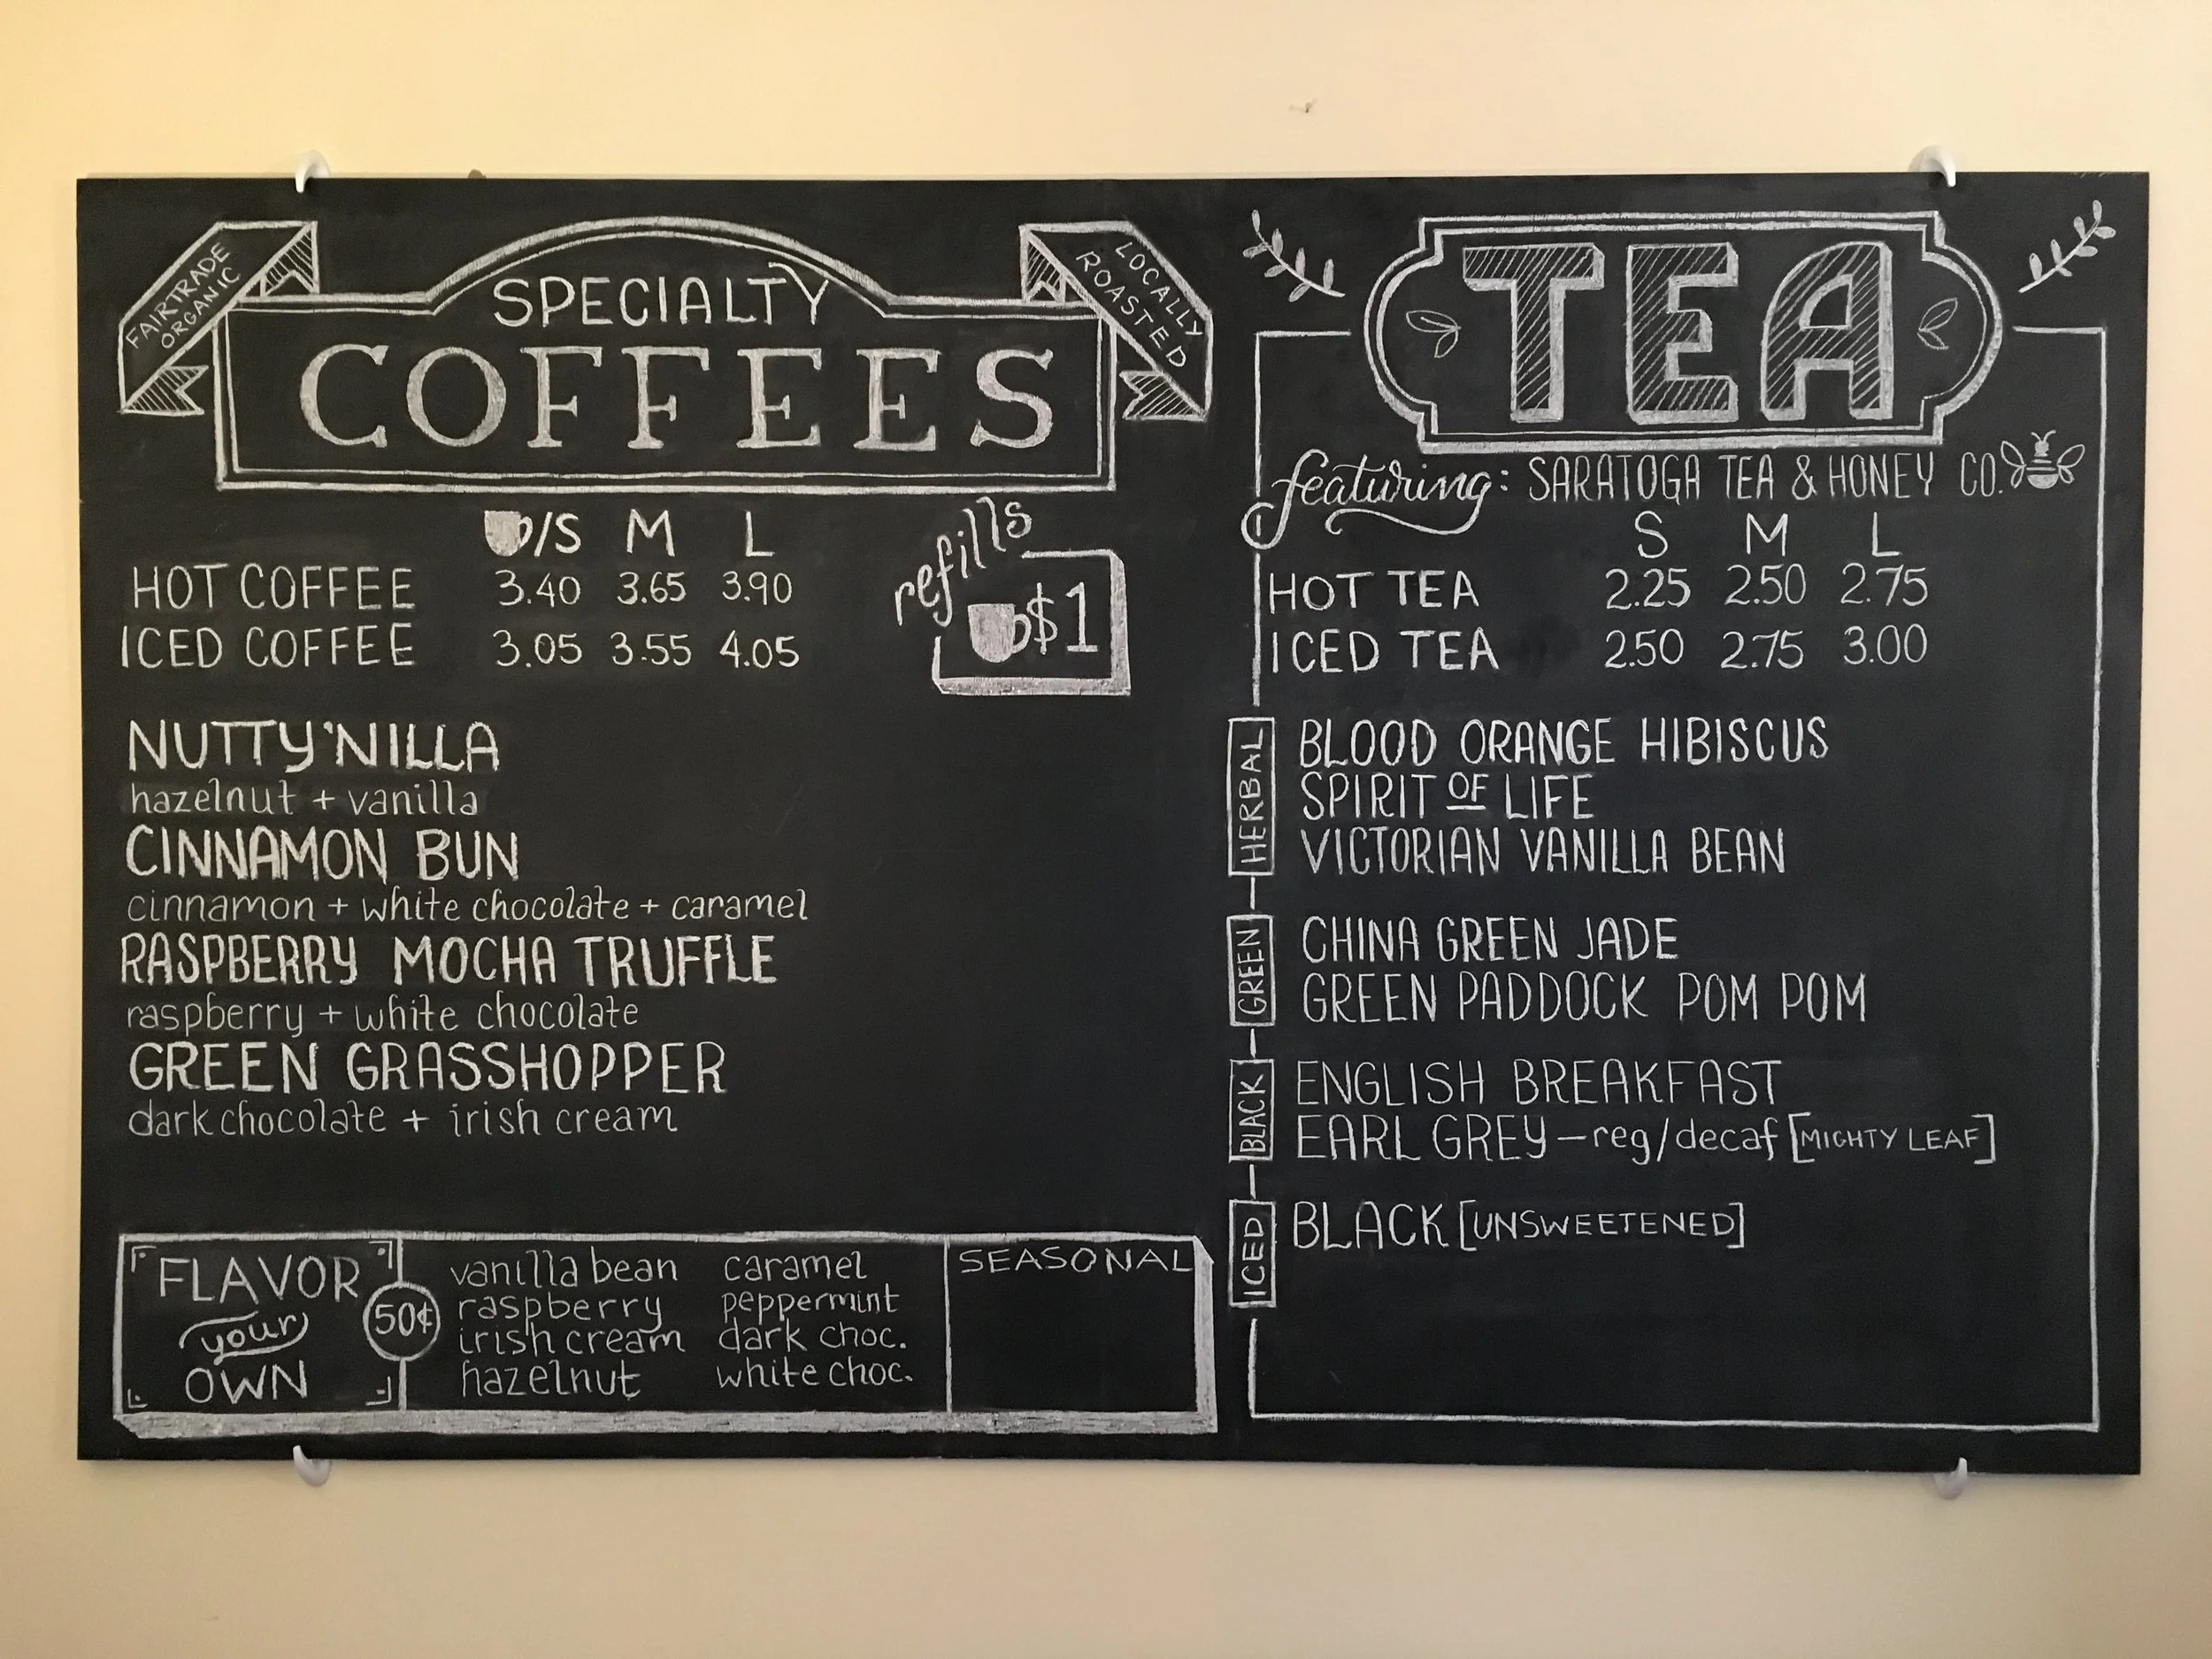 FAIRTRADE
ORGANIC
SPECIALTY
COFFEES
LOCALLY
ROASTED
/S M L
HOT COFFEE 3.40 3.65 3.90
ICED COFFEE 3.05 3.55 4.05
refills
$1
NUTTY'NILLA
hazelnut + vanilla
CINNAMON BUN
cinnamon + white chocolate + caramel
RASPBERRY MOCHA TRUFFLE
raspberry + white chocolate
GREEN GRASSHOPPER
dark chocolate + irish cream
FLAVOR
your
OWN
50¢
vanilla bean caramel
raspberry peppermint
irish cream dark choc.
hazelnut white choc.
SEASONAL
TEA
featuring: SARATOGA TEA & HONEY CO.
S M L
HOT TEA 2.25 2.50 2.75
ICED TEA 2.50 2.75 3.00
HERBAL
BLOOD ORANGE HIBISCUS
SPIRIT OF LIFE
VICTORIAN VANILLA BEAN
GREEN
CHINA GREEN JADE
GREEN PADDOCK POM POM
BLACK
ENGLISH BREAKFAST
EARL GREY – reg/decaf [MIGHTY LEAF]
ICED
BLACK [UNSWEETENED]